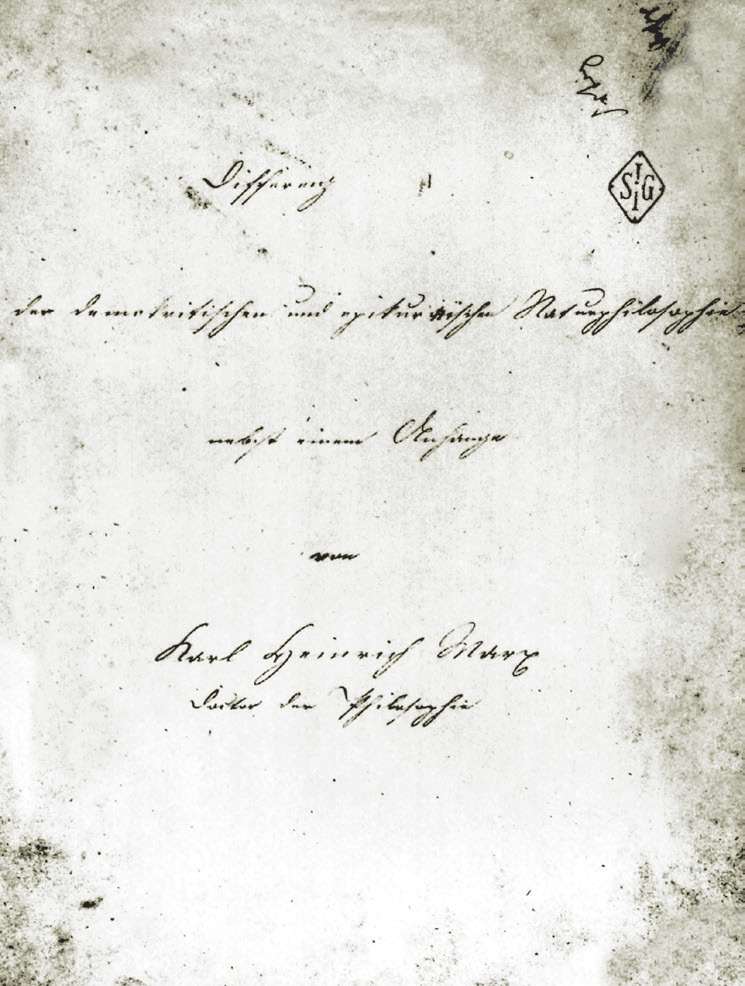 S I I G
Differenz
der demokritischen und epikureischen Naturphilosophie
nebst einem Anhange
von
Karl Heinrich Marx
Doctor der Philosophie